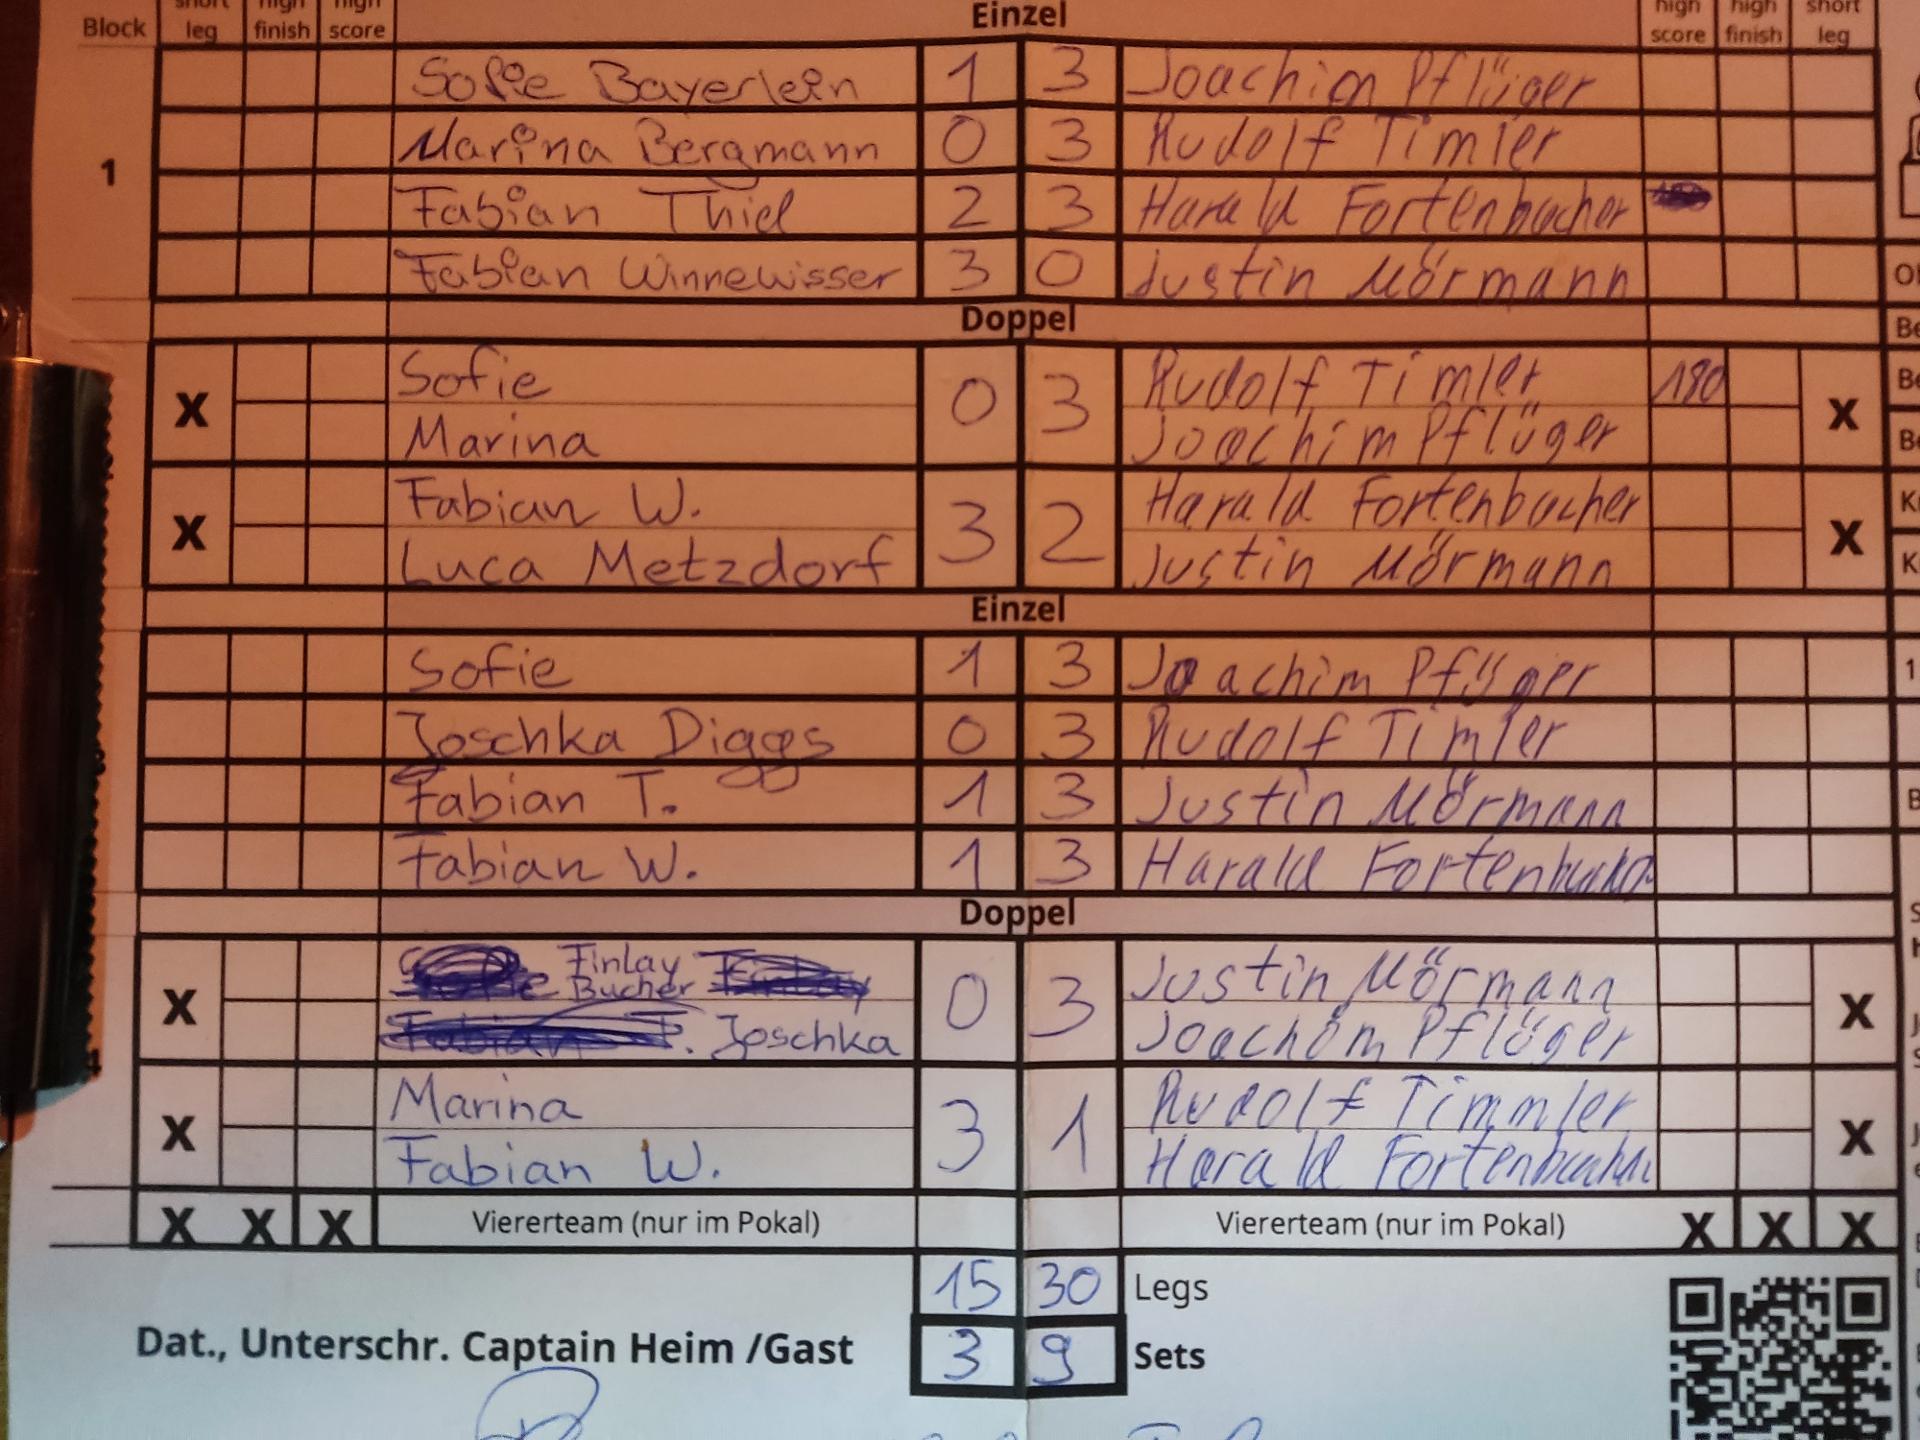 Block short leg high finish high score Einzel high score high finish short leg
Sofie Bayerlein 1 3 Joachim Pflüger
Marina Bergmann 0 3 Rudolf Timler
1
Fabian Thiel 2 3 Harald Fortenbacher
Fabian Winnewisser 3 0 Justin Mörmann
Doppel
Sofie Rudolf Timler 180
X 0 3 X
Marina Joachim Pflüger
Fabian W. Harald Fortenbacher
X 3 2 X
Luca Metzdorf Justin Mörmann
Einzel
Sofie 1 3 Joachim Pflüger
Joschka Diggs 0 3 Rudolf Timler
Fabian T. 1 3 Justin Mörmann
Fabian W. 1 3 Harald Fortenbacher
Doppel
Finlay Bucher Justin Mörmann
X 0 3 X
Joschka Joachim Pflüger
Marina Rudolf Timmler
X 3 1 X
Fabian W. Harald Fortenbacher
X X X Viererteam (nur im Pokal) Viererteam (nur im Pokal) X X X
15 30 Legs
Dat., Unterschr. Captain Heim /Gast 3 9 Sets